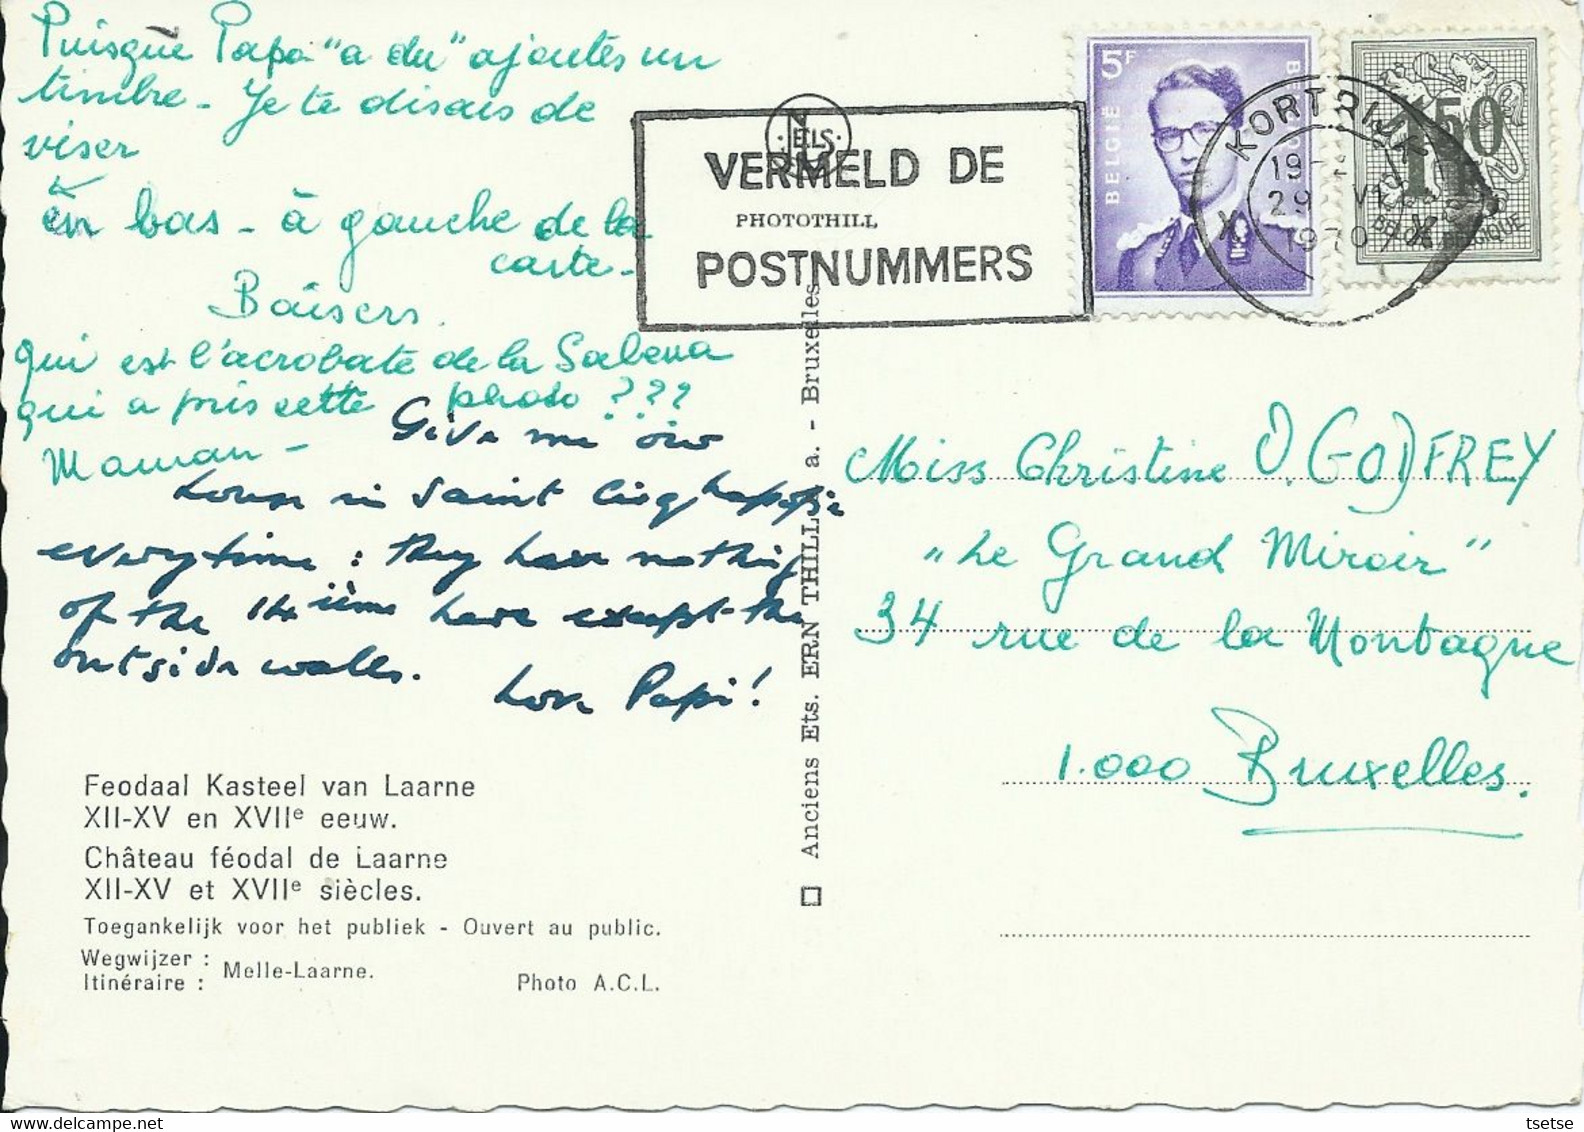 Puisque Papa "a du" ajouter un
timbre - Je te disais de
viser
en bas - à gauche de la
carte -
Baisers.
Qui est l'acrobate de la Sabena
qui a pris cette photo ???
Maman -
Give me our
house in Saint
everytime : they have nothing
of the 14ième here except the
outside walls.
Love Papi!
Feodaal Kasteel van Laarne
XII-XV en XVIIe eeuw.
Château féodal de Laarne
XII-XV et XVIIe siècles.
Toegankelijk voor het publiek - Ouvert au public.
Wegwijzer :
Itinéraire : Melle-Laarne.
Photo A.C.L.
Anciens Ets. ERN THILL s. a. - Bruxelles
NELS
PHOTOTHILL
VERMELD DE
POSTNUMMERS
5F
BELGIË
KORTRIJK
29
1970
X X
1F50
BELGIË-BELGIQUE
Miss Christine O. GODFREY
"Le Grand Miroir"
34 rue de la Montagne
1.000 Bruxelles.
tsetse